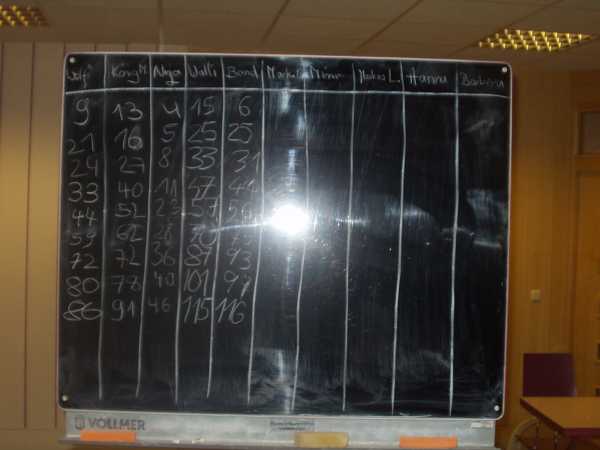 Wolf König M. Ninja Walli Band Markus L. Hanna Barbara
9 13 4 15 6
21 16 5 25 25
24 27 8 33 31
33 40 11 47
44 52 23 57
59 62 28 70
72 72 36 87 93
80 78 40 101 97
86 91 46 115 116
VOLLMER